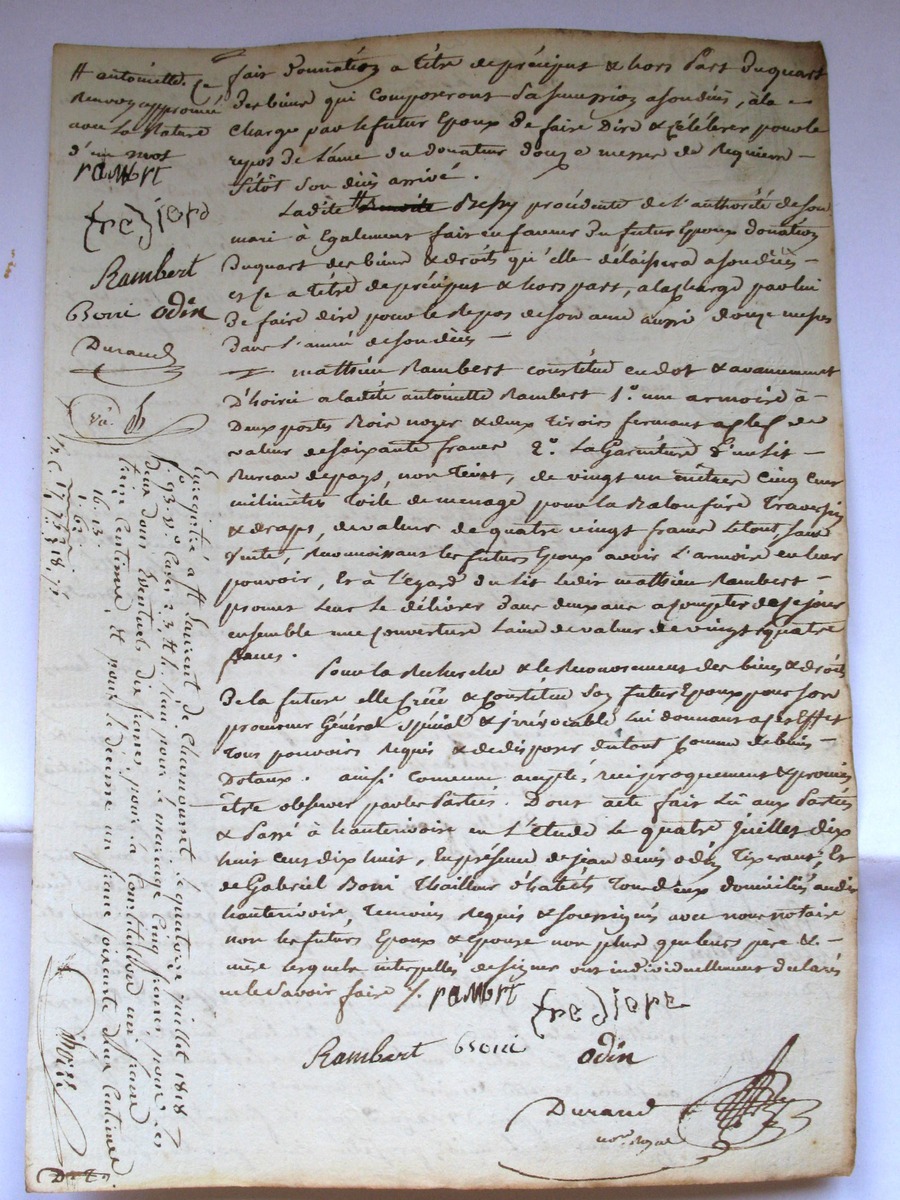 fait donnation a titre de préciput & hors part du quart
des biens qui composeront sa succession a son décès, à la
charge par le futur Epoux de faire dire & célébrer pour le
repos de l'ame du donateur douze messes de Requiem
sitôt son décès arrivé.
Ladite Bessy procédente de l'authorité de son
mari à Egalement fait en faveur du futur Epoux donation
du quart des biens & droits qu'elle délaissera a son décès
et ce a titre de préciput & hors part, a la charge par lui
de faire dire pour le repos de son ame aussi douze messes
dans l'année de son décès
mathieu Rambert constitue en dot & avancement
d'hoirie a ladite antoinette Rambert 1.° une armoire à
deux portes Bois noyer & deux tiroirs fermant a clef de
valeur de soixante francs 2.° La Garniture d'un lit
Bureau de pays, non teint, de vingt un mètres cinq cent
milimètres toile de menage pour la Baloufière traversin
& draps, de valeur de quatre vingt francs Le tout, sans
vente, Reconnoissant les futurs Epoux avoir L'armoire en leur
pouvoir, Et à l'égard du lit ledit mathieu Rambert
promet leur le délivrer dans deux ans a compter de ce jour
ensemble une couverture laine de valeur de vingt quatre
francs.
Pour la Recherche & le Recouvrement des biens & droits
de la future elle Créé & Constitue son futur Epoux pour son
procureur Général Spécial & irrévocable lui donnant a cet Effet
tous pouvoirs Requis & de disposer du tout comme de biens
Dotaux. ainsi convenu accepté, réciproquement & promis
être observer par les Parties. Dont acte fait Lû aux Parties
& Passé à hauterivoire en L'étude Le quatre juillet dix
huit cent dix huit, En présence de jean denis odin Tixerant, Et
de Gabriel Boni Thailleur d'habits Tous deux domiciliés audit
hauterivoire, Temoins Requis & soussignés avec nous notaire
non les futurs Epoux & Epouse non plus que leurs père &
mère lesquels interpellés de signer ont individuellement déclarés
ne le savoir faire ./.
Rambert Boni odin
Durand
no.re Royal
# antoinette. Ce
Renvoy approuvé
avec La Rature
d'un mot
Rambert
Boni odin
Durand
Enregistré à St Laurent de Chamousset le quatorze juillet 1818
f.° 93 v.° Case 2 3, & h. Reçu pour le mariage Cinq francs, pour les
deux dons Eventuels dix francs, pour la Constitution un franc
trein Centimes, Et pour le décime un franc soixante deux Centimes
16 13.
1. 62
17 75